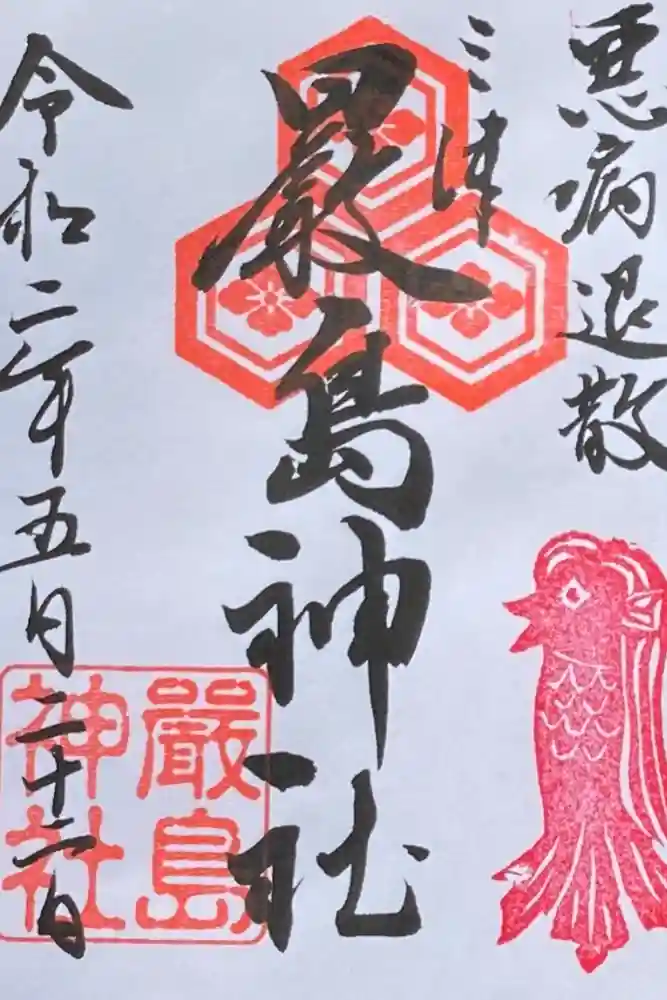 悪病退散
三津
厳島神社
令和二年五月二十二日
嚴島
神社